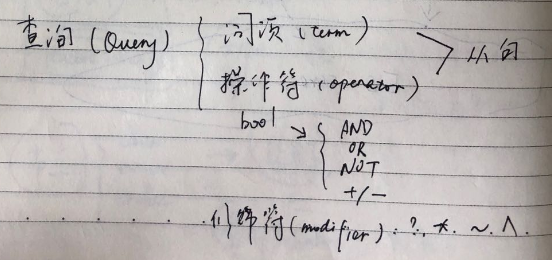 查询 (Query) { 词项 (term) > 从句
操作符 (operator)
bool → { AND
OR
NOT
+/-
修饰符 (modifier) : ?, *. ~. ^.